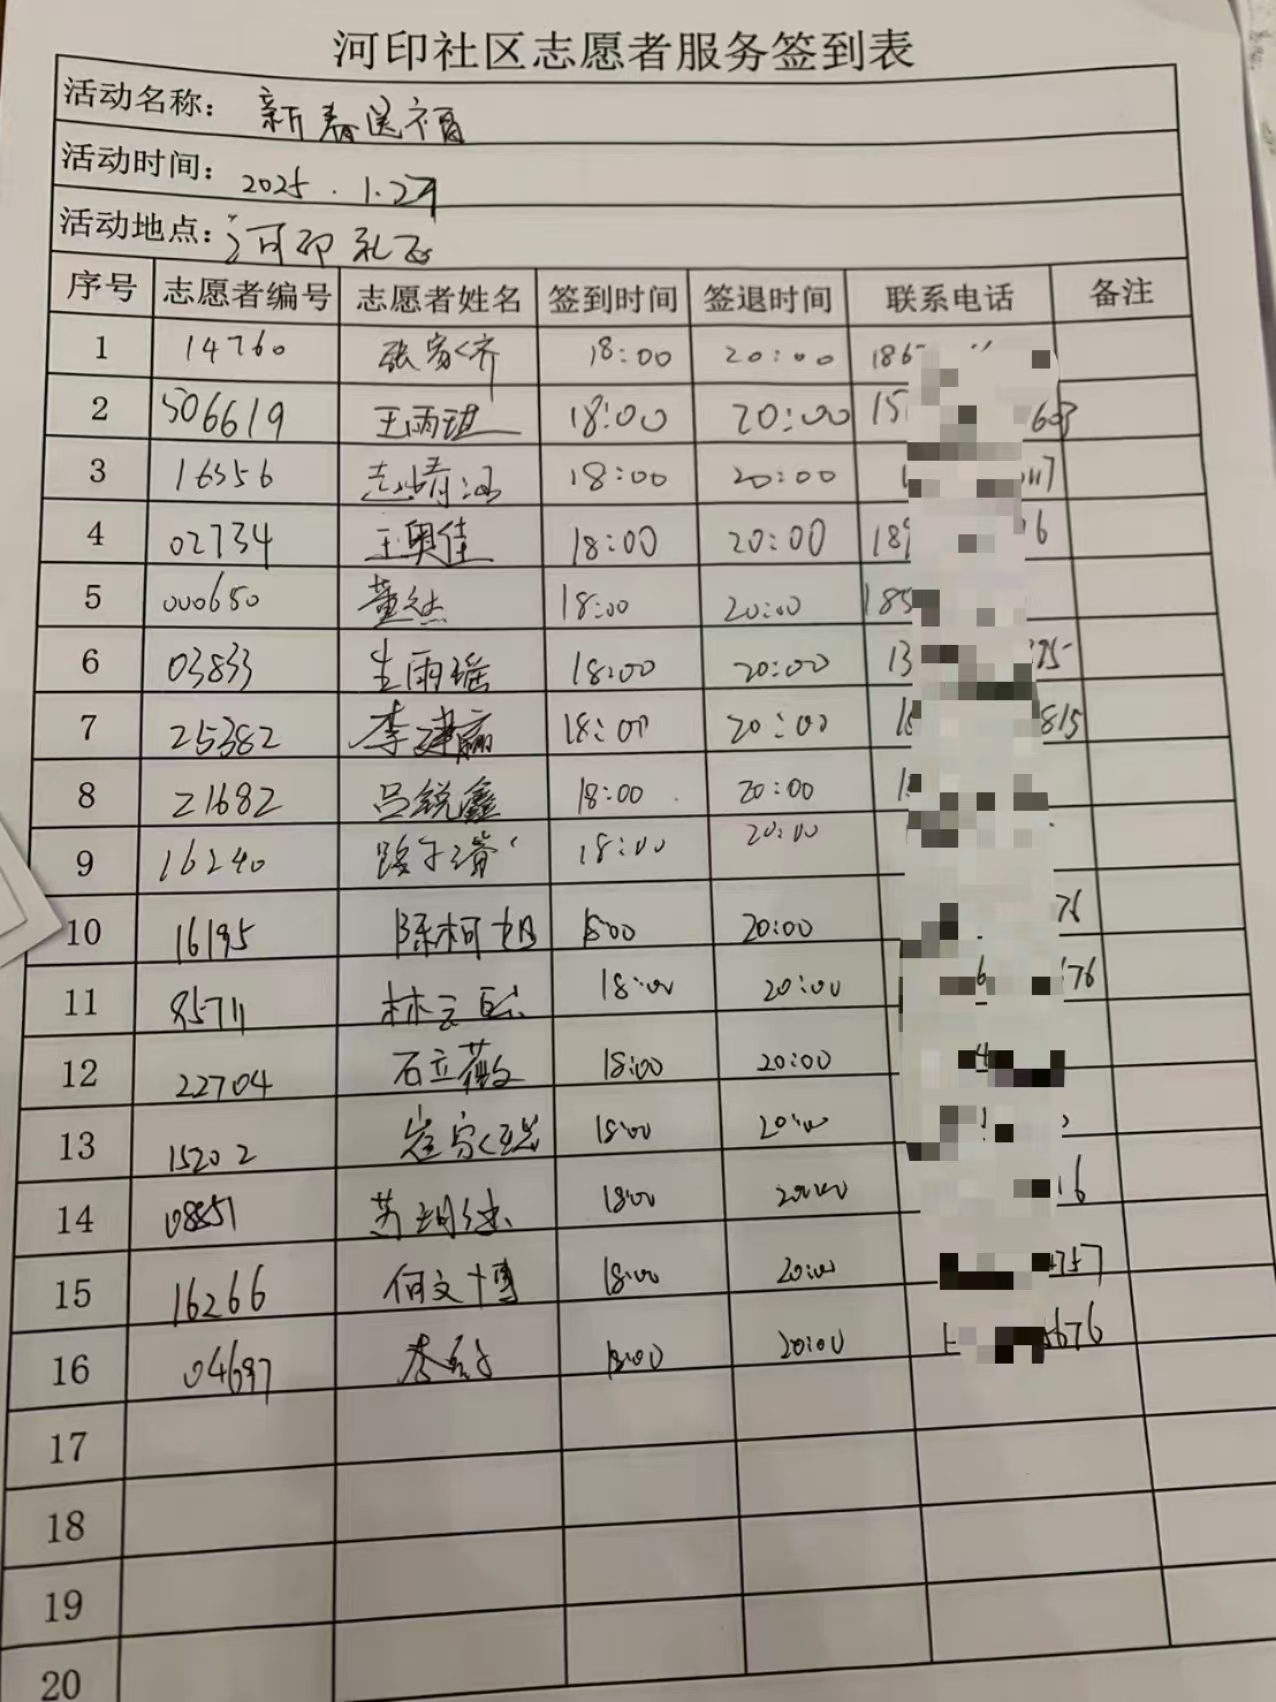 河印社区志愿者服务签到表
活动名称: 新春送福
活动时间: 2025.1.27
活动地点: 河印社区
序号 志愿者编号 志愿者姓名 签到时间 签退时间 联系电话 备注
1 14760 张家齐 18:00 20:00 186
2 506619 王雨琪 18:00 20:00 15 603
3 16356 18:00 20:00
4 02734 王奥佳 18:00 20:00 189 6
5 000650 董 18:00 20:00 185
6 03833 生雨瑶 18:00 20:00 13
7 25382 李建赢 18:00 20:00 815
8 21682 吕锐鑫 18:00 20:00
9 16240 路子 18:00 20:00
10 16195 陈柯旭 18:00 20:00 76
11 85711 林云 18:00 20:00 6 676
12 22704 石立薇 18:00 20:00 4
13 15202 崔家 18:00 20:00
14 08851 苏 18:00 20:00 16
15 16266 何文博 18:00 20:00 757
16 04697 李 18:00 20:00 5676
17
18
19
20